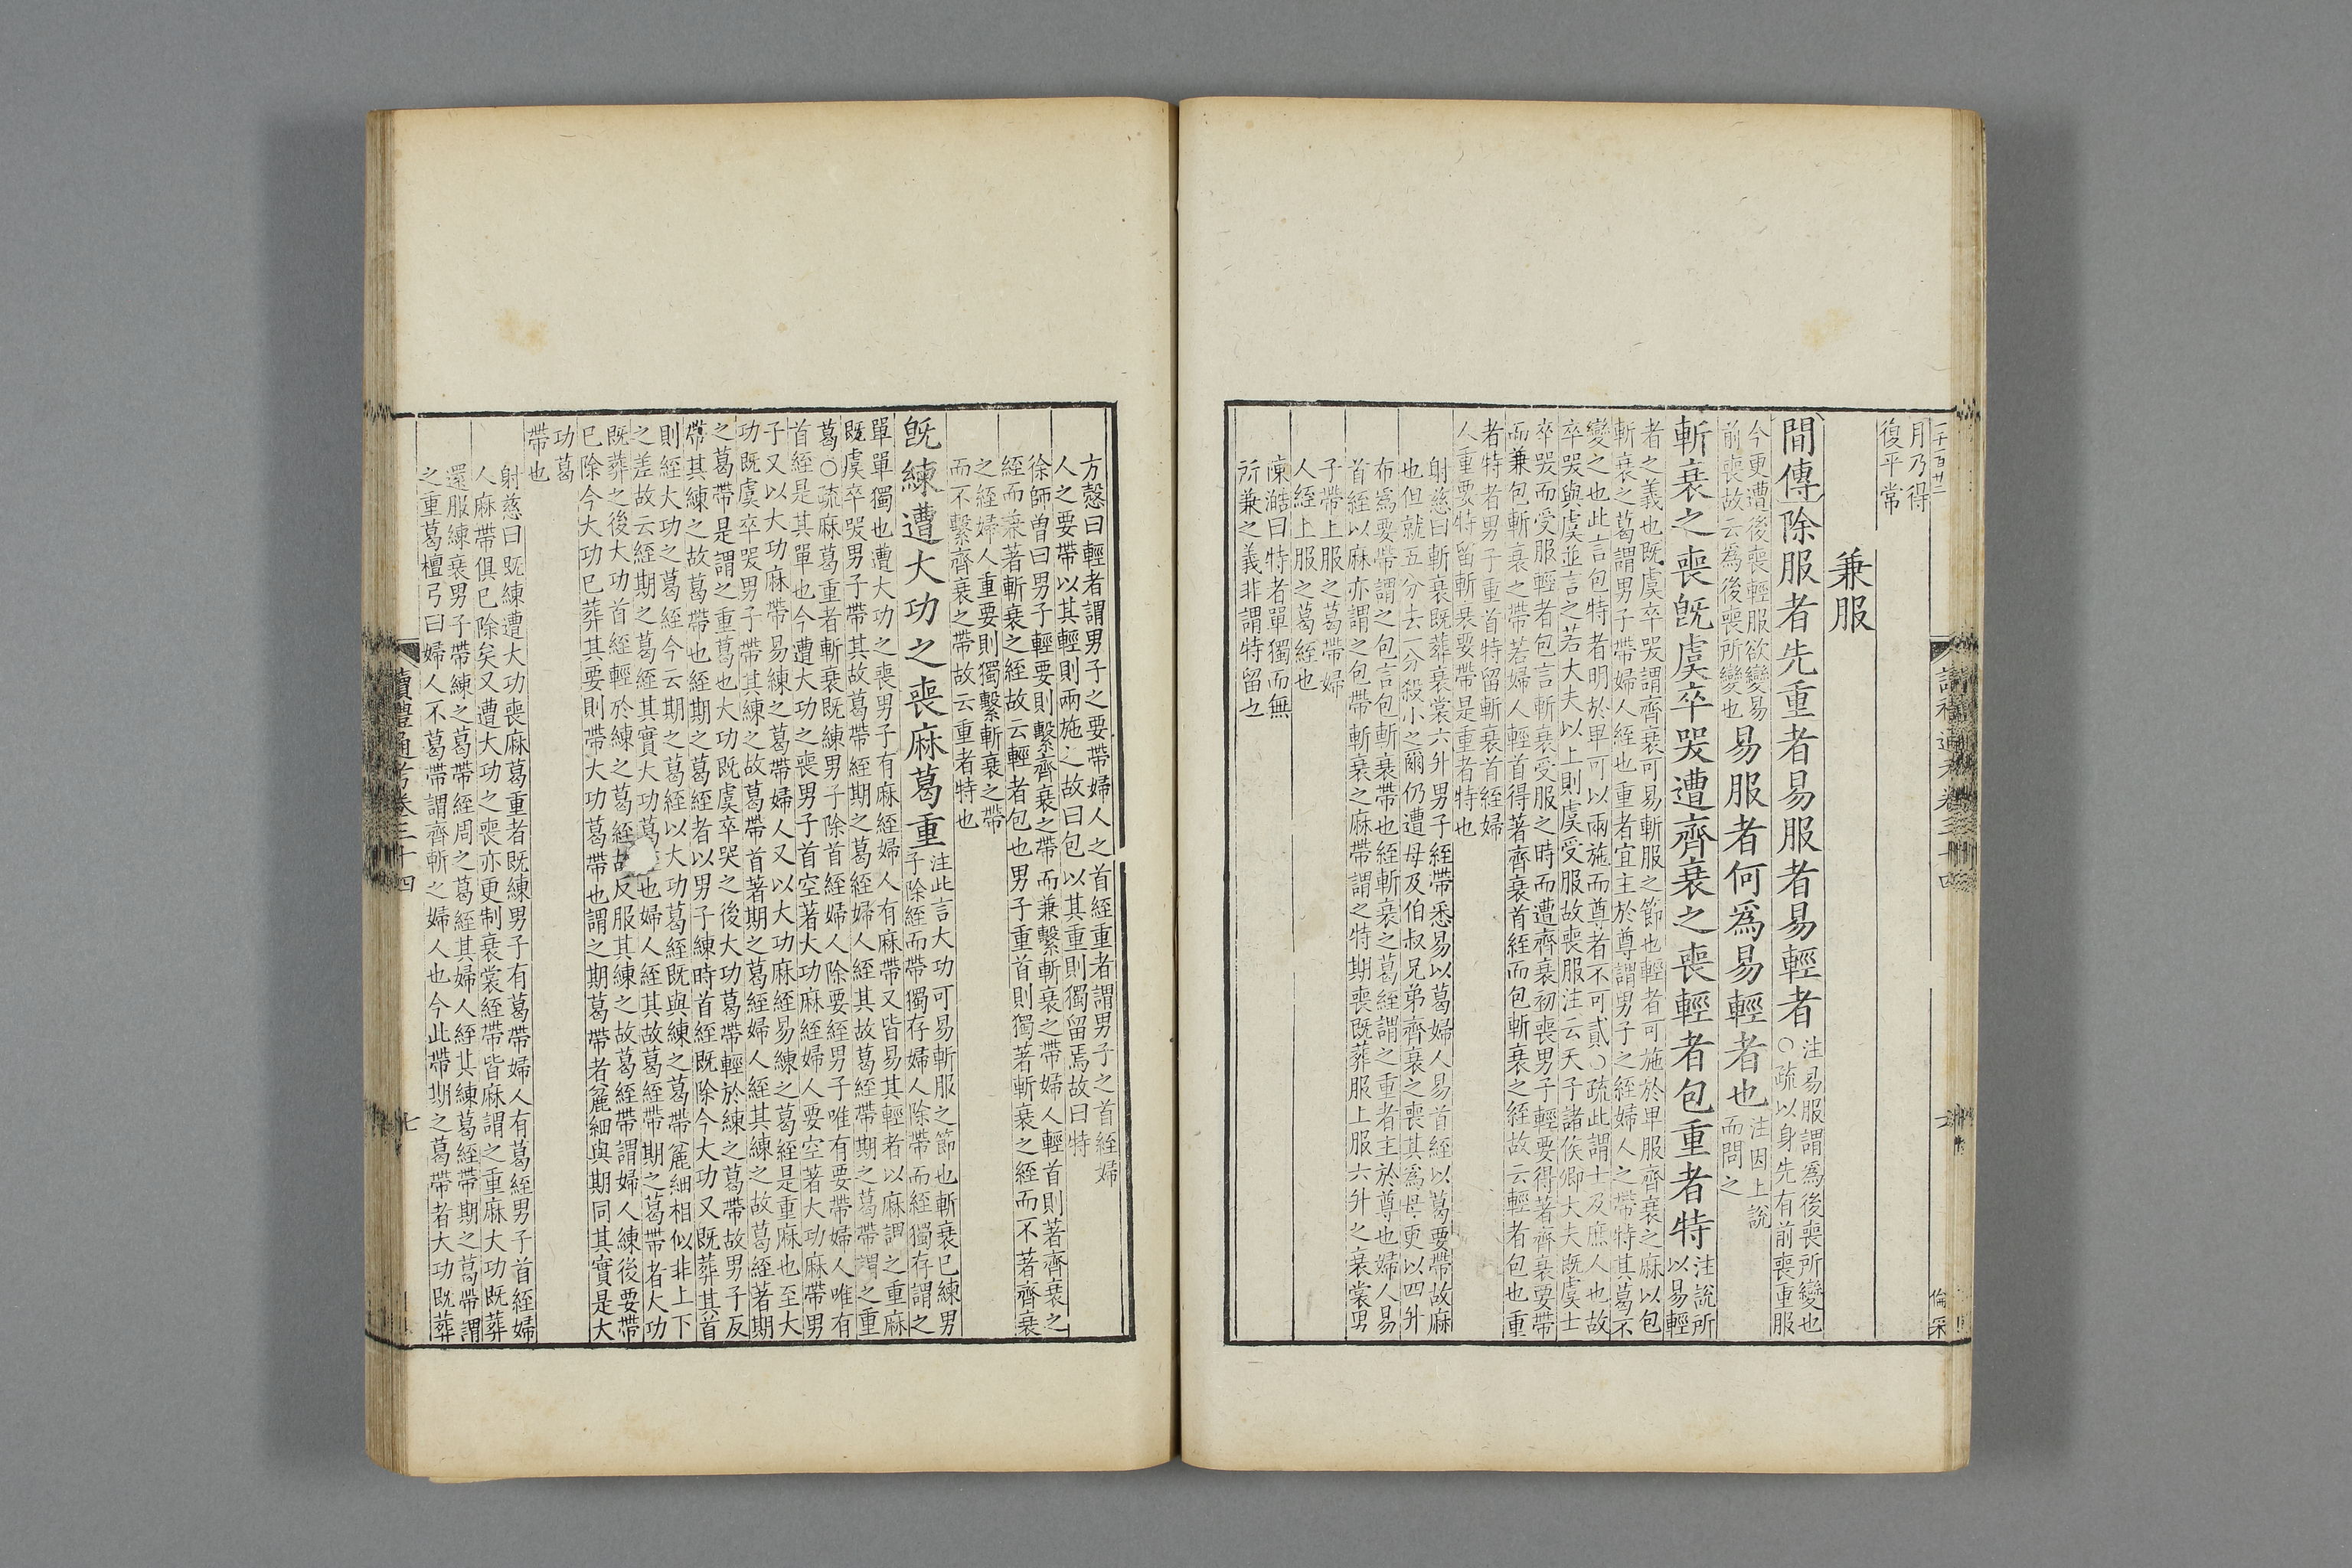 月乃得
復平常
兼服
間傳除服者先重者易服者易輕者
注易服謂為後喪所變也
○疏以身先有前喪重服
今更遭後喪輕服欲變易
前喪故云為後喪所變也
易服者何爲易輕者也
注因上說
而問之
斬衰之喪旣虞卒哭遭齊衰之喪輕者包重者特
注說所
以易輕
者之義也既虞卒哭謂齊衰可易斬服之節也輕者可施於卑服齊衰之麻以包
斬衰之葛謂男子帶婦人絰也重者宜主於尊謂男子之絰婦人之帶特其葛不
變之也此言包特者明於卑可以兩施而尊者不可貳○疏此謂士及庶人也故
卒哭與虞並言之若大夫以上則虞受服故喪服注云天子諸侯卿大夫既虞士
卒哭而受服輕者包言斬衰受服之時而遭齊衰初喪男子輕要得著齊衰要帶
而兼包斬衰之帶若婦人輕首得著齊衰首絰而包斬衰之絰故云輕者包也重
者特者男子重首特留斬衰首絰婦
人重要特留斬衰要帶是重者特也
射慈曰斬衰既葬衰裳六升男子絰帶悉易以葛婦人易首絰以葛要帶故麻
也但就五分去一分殺小之爾仍遭母及伯叔兄弟齊衰之喪其為母更以四升
布為要帶謂之包言包斬衰帶也絰斬衰之葛絰謂之重者主於尊也婦人易
首絰以麻亦謂之包帶斬衰之麻帶謂之特期喪既葬服上服六升之衰裳男
子帶上服之葛帶婦
人絰上服之葛絰也
陳澔曰特者單獨而無
所兼之義非謂特留之
方慤曰輕者謂男子之要帶婦人之首絰重者謂男子之首絰婦
人之要帶以其輕則兩施之故曰包以其重則獨留焉故曰特
徐師曾曰男子輕要則繫齊衰之帶而兼繫斬衰之帶婦人輕首則著齊衰之
絰而兼著斬衰之絰故云輕者包也男子重首則獨著斬衰之絰而不著齊衰
之絰婦人重要則獨繫斬衰之帶
而不繫齊衰之帶故云重者特也
旣練遭大功之喪麻葛重
注此言大功可易斬服之節也斬衰已練男
子除絰而帶獨存婦人除帶而絰獨存謂之
單單獨也遭大功之喪男子有麻絰婦人有麻帶又皆易其輕者以麻謂之重麻
既虞卒哭男子帶其故葛帶絰期之葛絰婦人絰其故葛絰帶期之葛帶謂之重
葛○疏麻葛重者斬衰既練男子除首絰婦人除要絰男子唯有要帶婦人唯有
首絰是其單也今遭大功之喪男子首空著大功麻絰婦人要空著大功麻帶男
子又以大功麻帶易練之葛帶婦人又以大功麻絰易練之葛絰是重麻也至大
功既虞卒哭男子帶其練之故葛帶首著期之葛絰婦人絰其練之故葛絰著期
之葛帶是謂之重葛也大功既虞卒哭之後大功葛帶輕於練之葛帶故男子反
帶其練之故葛帶也絰期之葛絰者以男子練時首絰既除今大功又既葬其首
則絰大功之葛絰今云期之葛絰以大功葛絰既與練之葛帶麄細相似非上下
之差故云絰期之葛絰其實大功葛也婦人絰其故葛絰帶期之葛帶者大功
既葬之後大功首絰輕於練之葛絰故反服其練之故葛絰帶謂婦人練後要帶
已除今大功已葬其要則帶大功葛帶也謂之期葛帶者麄細與期同其實是大
功葛
帶也
射慈曰既練遭大功喪麻葛重者既練男子有葛帶婦人有葛絰男子首絰婦
人麻帶俱已除矣又遭大功之喪亦更制衰裳絰帶皆麻謂之重麻大功既葬
還服練衰男子帶練之葛帶絰周之葛絰其婦人絰其練葛絰帶期之葛帶謂
之重葛檀弓曰婦人不葛帶謂齊斬之婦人也今此帶期之葛帶者大功既葬
讀禮通考卷三十四
七